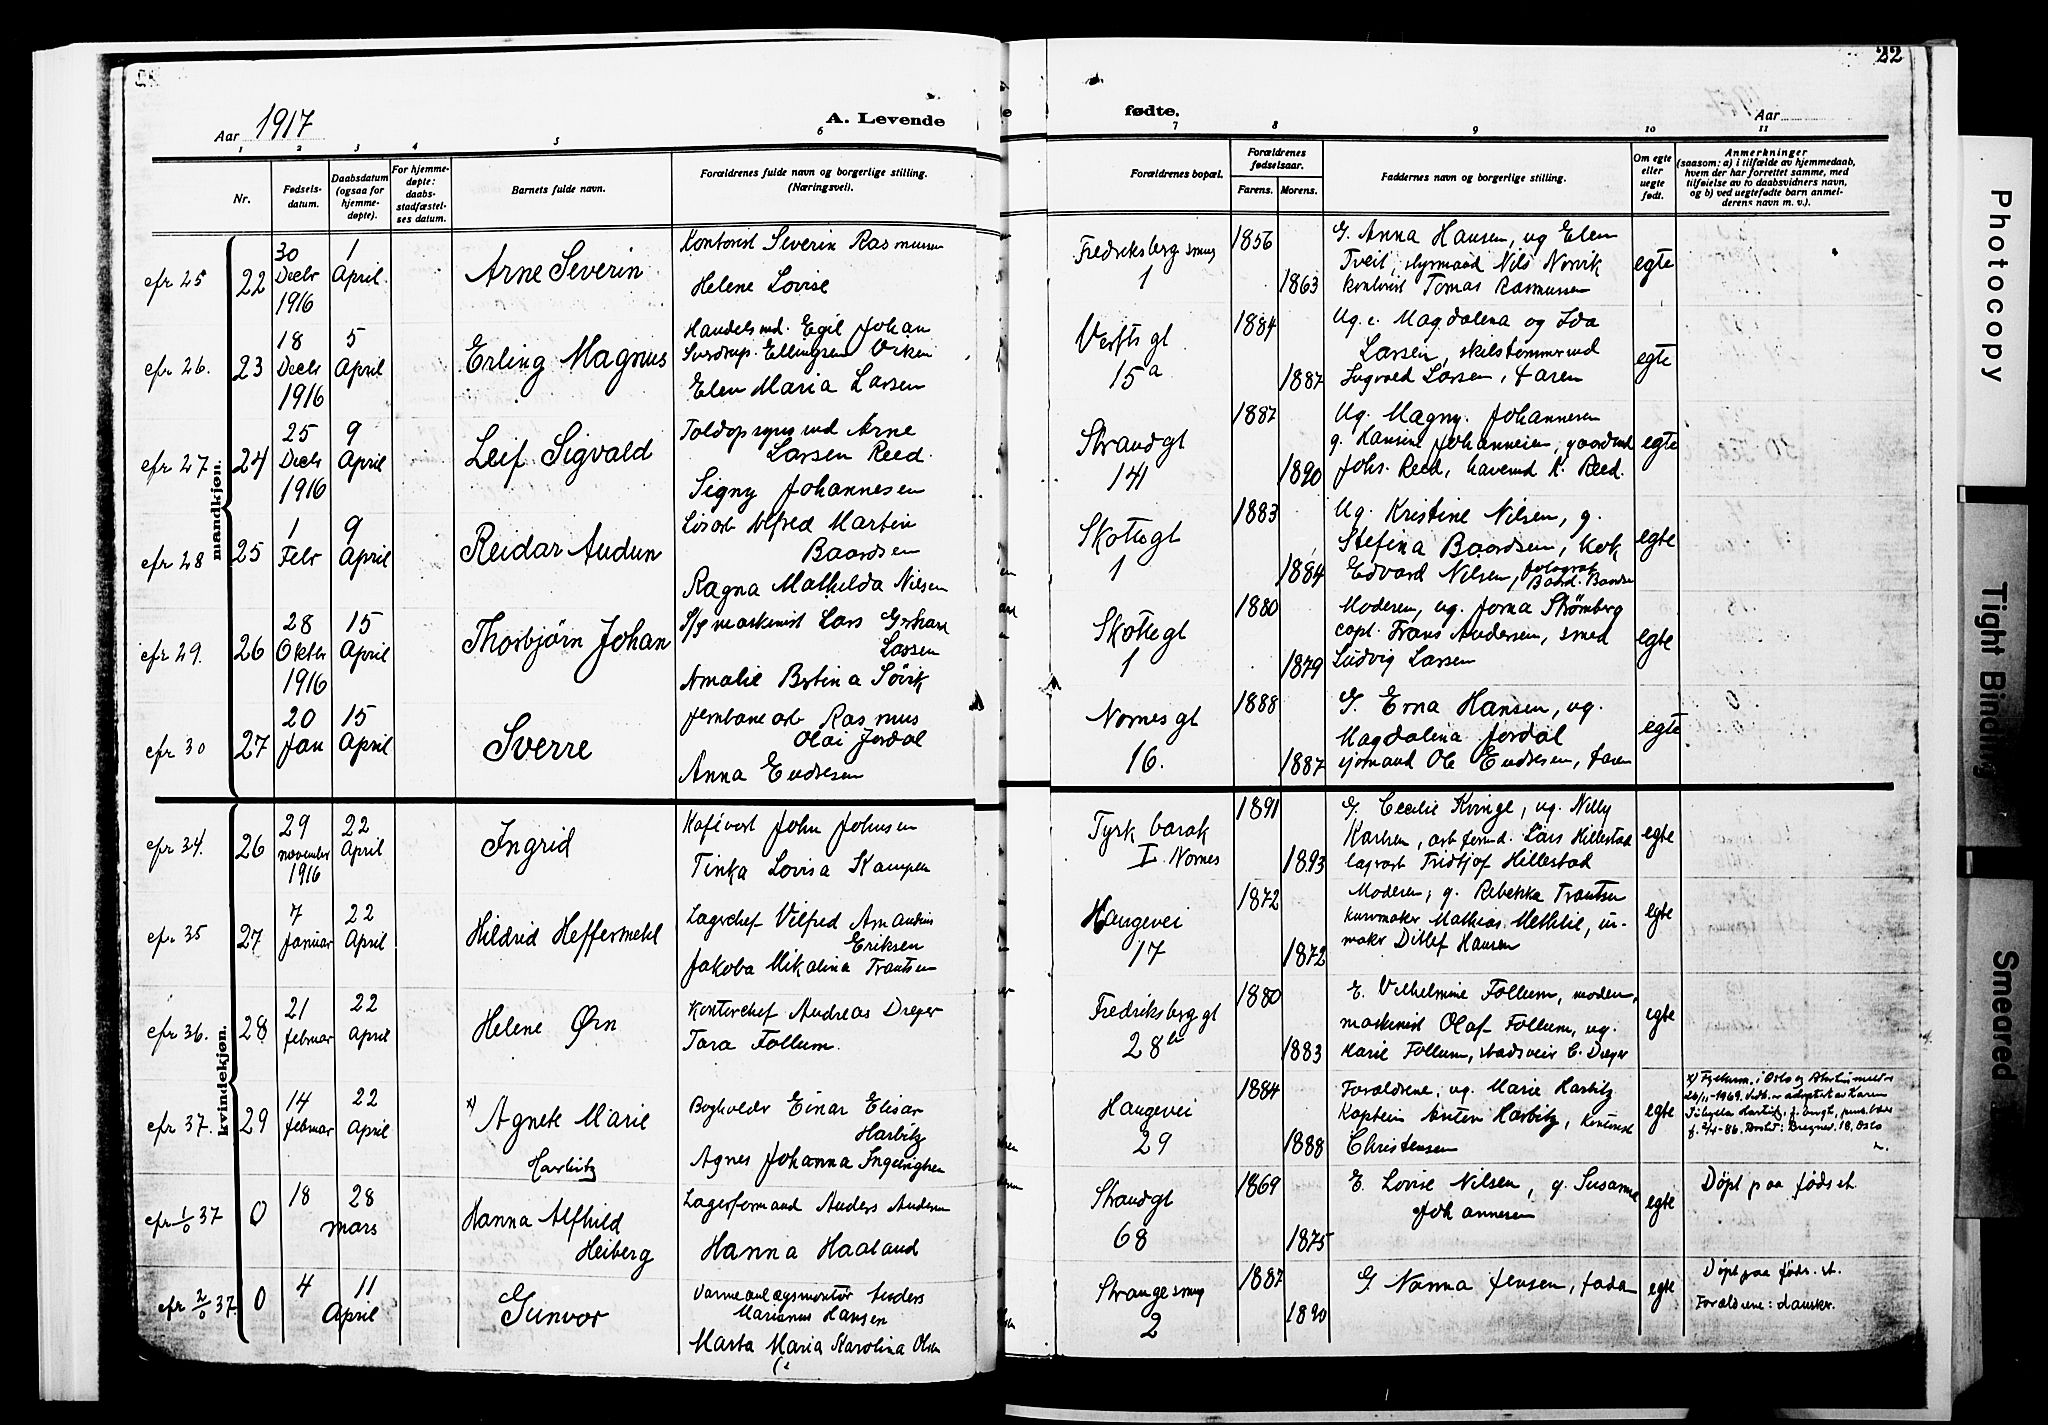 Aar 1917
A. Levende
fødte.
Aar
22
1 2 3 4 5 6 7 8 9 10 11
Nr.
Fødsels-
datum.
Daabsdatum
(ogsaa for
hjemme-
døpte).
For hjemme-
døpte:
daabs-
stadfæstel-
ses datum.
Barnets fulde navn.
Forældrenes fulde navn og borgerlige stilling.
(Næringsvei).
Forældrenes bopæl.
Forældrenes
fødselsaar.
Farens. Morens.
Faddernes navn og borgerlige stilling.
Om egte
eller
uegte
født.
Anmerkninger
(saasom: a) i tilfælde av hjemmedaab,
hvem der har forrettet samme, med
tilføielse av to daabsvidners navn,
og b) ved uegtefødte barn anmel-
derens navn m. v.).
mandkjøn.
cfr 25 22
30 Decbr 1916
1 April
Arne Severin
Kontorist Severin Rasmussen
Helene Lovise
Fredriksberg smug
1
1856 1863
G. Anna Hansen, ug Elen
Tveit, styrmand Nils Norvik
kontorist Tomas Rasmussen
egte
cfr 26. 23
18 Decbr 1916
5 April
Erling Magnus
Handelsmd. Egil Johan
Ellingsen Viken
Elen Maria Larsen
Verfts gt
15a
1884 1887
Ug. Magdalena og Ida
Larsen, skibstømmermd
Ingvald Larsen, faren
egte
cfr 27. 24
25 Decbr 1916
9 April
Leif Sigvald
Toldopsynsmd Arne
Larsen Reed.
Signy Johannesen
Strandgt
141
1887 1890
Ug. Magny. Johannesen
g. Hansine Johannesen, gaardmd
Johs. Reed, havnemd K. Reed.
egte
cfr 28 25
1 Febr
9 April
Reidar Audun
Alfred Martin
Baardsen
Ragna Mathilda Nilsen
Skottegt
1
1883 1884
Ug. Kristine Nilsen, g.
Stefina Baardsen, kok
Edvard Nilsen, fotograf
egte
cfr 29. 26
28 Oktbr 1916
15 April
Thorbjørn Johan
S/s maskinist Lars Gerhard
Larsen
Amalie Bertina Sørvik
Skottegt
1
1880 1879
Moderen, ug. Jorna Strømberg
capt. Frans Andersen, smed
Ludvig Larsen
egte
cfr 30 27
20 Jan
15 April
Sverre
Jernbane arb Rasmus
Olai Jordal
Anna Endresen
Nornesgt
16.
1888 1887
G. Erna Hansen, ug.
Magdalena Jordal
sjømand Ole Endresen, faren
egte
kvindekjøn.
cfr 34. 26
29 november 1916
22 April
Ingrid
Kafévert John Johnsen
Tinka Lovisa Kampen
Tysk barak
I. Nornes
1891 1893
G. Cecilie Kvinge, ug. Nilly
Karlsen, arb. formd. Lars Hillestad
Fridtjof Hillestad
egte
cfr 35 27
7 Januar
22 April
Hildrid Heffermehl
Lagerchef Vilfred Amandus
Eriksen
Jakoba Mikalina Trantsen
Haugevei
17
1872 1872
Moderen, g. Rebekka Trantsen
kurvmaker Mathias Methlie, ur-
maker Ditlef Hansen
egte
cfr 36. 28
21 februar
22 April
Helene Ørn
Kontorchef Andreas Dreyer
Tara Follum.
Fredriksberg gt
28b
1880 1883
E. Vilhelmine Follum, moderen,
maskinist Olaf Follum, ug.
Marie Follum, stadsveier C. Dreyer
egte
cfr 37. 29
14 februar
22 April
x) Agnete Marie
Harbitz
Bogholder Einar Elisar
Harbitz
Agnes Johanna Ingebrigtsen
Haugevei
29
1884 1888
Forældrene, ug. Marie Harbitz
Kaptein Anton Harbitz, kontorist
Christensen
egte
x) Fylkesm. i Oslo og Akershus meddelt
26/11-1969. adoptert av Karen
18, Oslo
cfr 1/0 37 0
18 28
mars
Hanna Alfhild
Heiberg
Lagerformand Anders Andersen
Hanna Haaland
Strandgt
68
1869 1875
E. Lovise Nilsen, g. Susanne
Johannesen
egte
Døpt paa føds. st.
cfr 2/0 37. 0
4 11
April
Gunvor
Varmeanlægsmontør Anders
Marianus Hansen
Marta Maria Karolina Olsen
Strangesmug
2
1887 1890
G. Nanna Jensen, fader
egte
Døpt paa føds. st.
Forældrene: dansker.
Photocopy
Tight Binding
Smeared